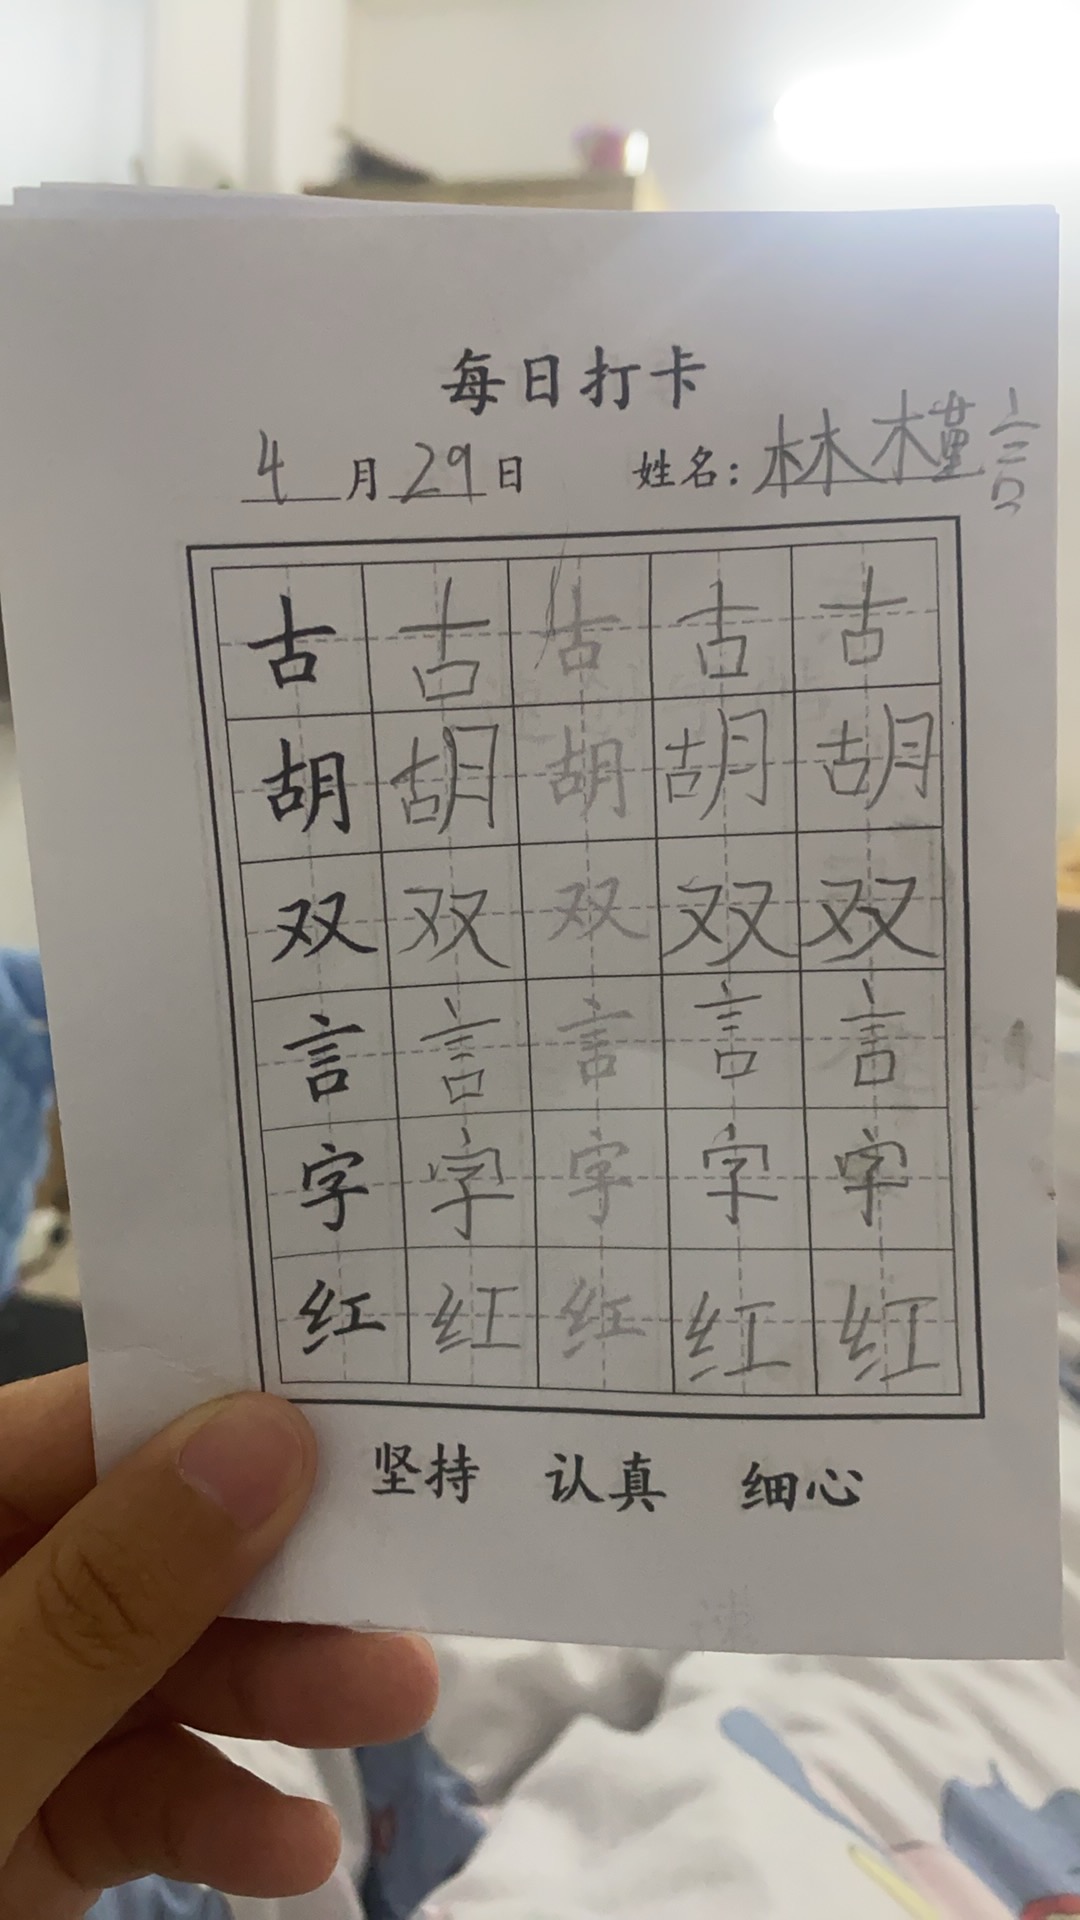 每日打卡
4月29日 姓名：林槿言
古 古 古 古 古
胡 胡 胡 胡 胡
双 双 双 双 双
言 言 言 言 言
字 字 字 字 字
红 红 红 红 红
坚持 认真 细心